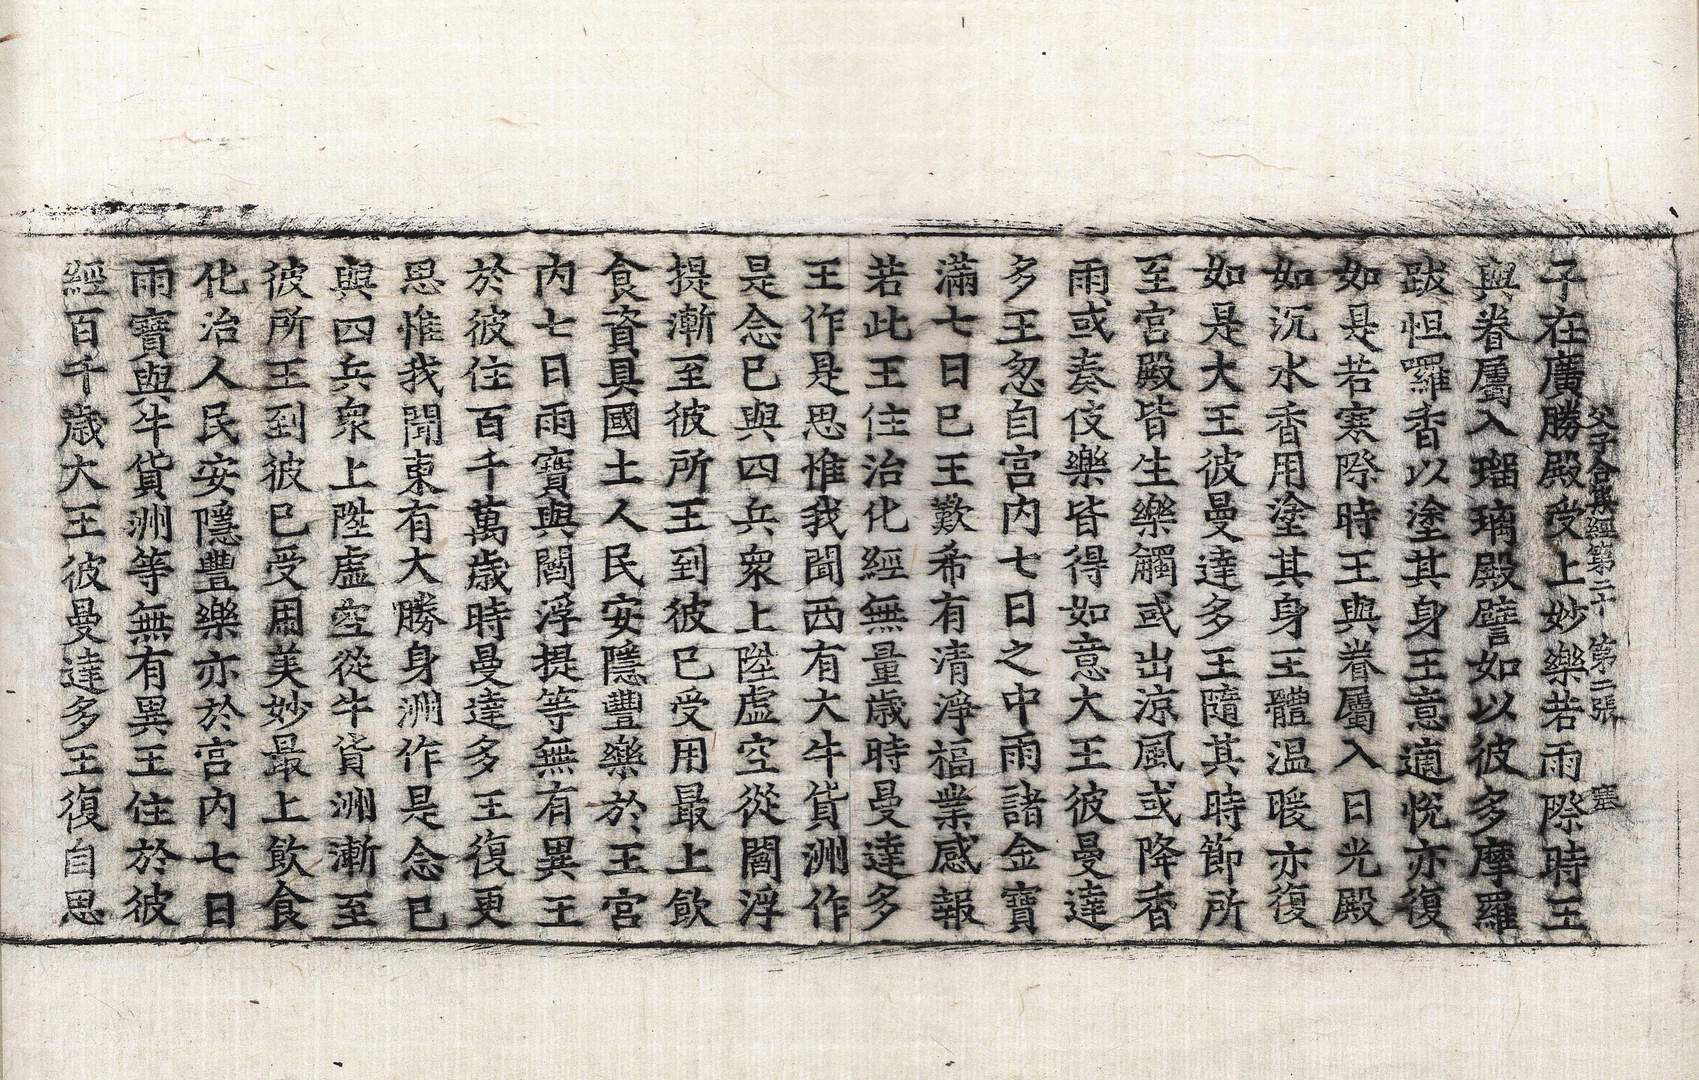 父子合集經第二十 第二張 塞
子在廣勝殿受上妙樂若雨際時王
與眷屬入瑠璃殿譬如以彼多摩羅
跋怛囉香以塗其身王意適悅亦復
如是若寒際時王與眷屬入日光殿
如沉水香用塗其身王體温暖亦復
如是大王彼曼達多王隨其時節所
至宮殿皆生樂觸或出涼風或降香
雨或奏伎樂皆得如意大王彼曼達
多王忽自宮內七日之中雨諸金寶
滿七日已王歎希有清淨福業感報
若此王住治化經無量歲時曼達多
王作是思惟我聞西有大牛貨洲作
是念已與四兵衆上陞虛空從閻浮
提漸至彼所王到彼已受用最上飲
食資具國土人民安隱豐樂於王宮
內七日雨寶與閻浮提等無有異王
於彼住百千萬歲時曼達多王復更
思惟我聞東有大勝身洲作是念已
與四兵衆上陞虛空從牛貨洲漸至
彼所王到彼已受用美妙最上飲食
化治人民安隱豐樂亦於宮內七日
雨寶與牛貨洲等無有異王住於彼
經百千歲大王彼曼達多王復自思